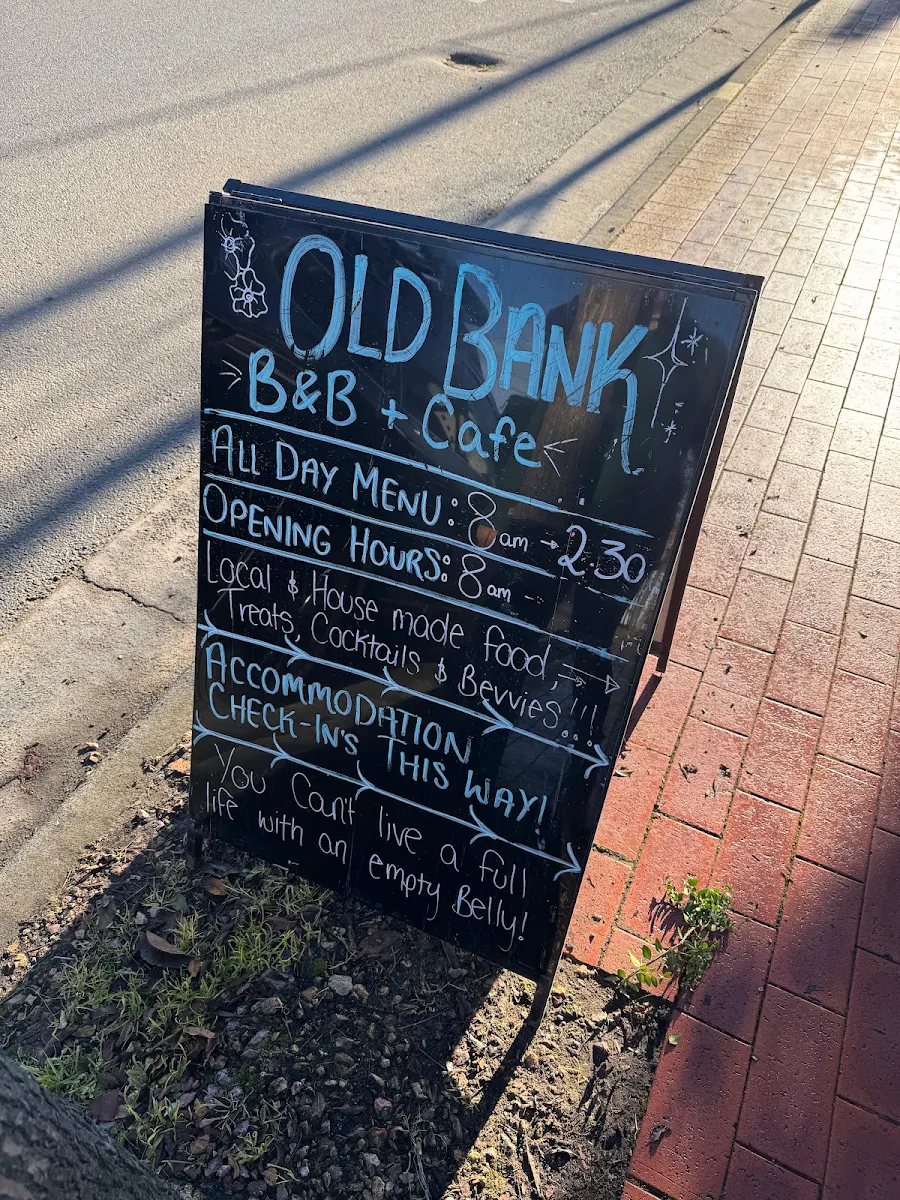 OLD BANK
B&B + Cafe
ALL DAY MENU: 8am → 2.30
OPENING HOURS: 8am -
Local & House made food,
Treats, Cocktails & Bevvies!!!
ACCOMMODATION
CHECK-IN's THIS WAY!
You Can't live a full
life with an empty Belly!